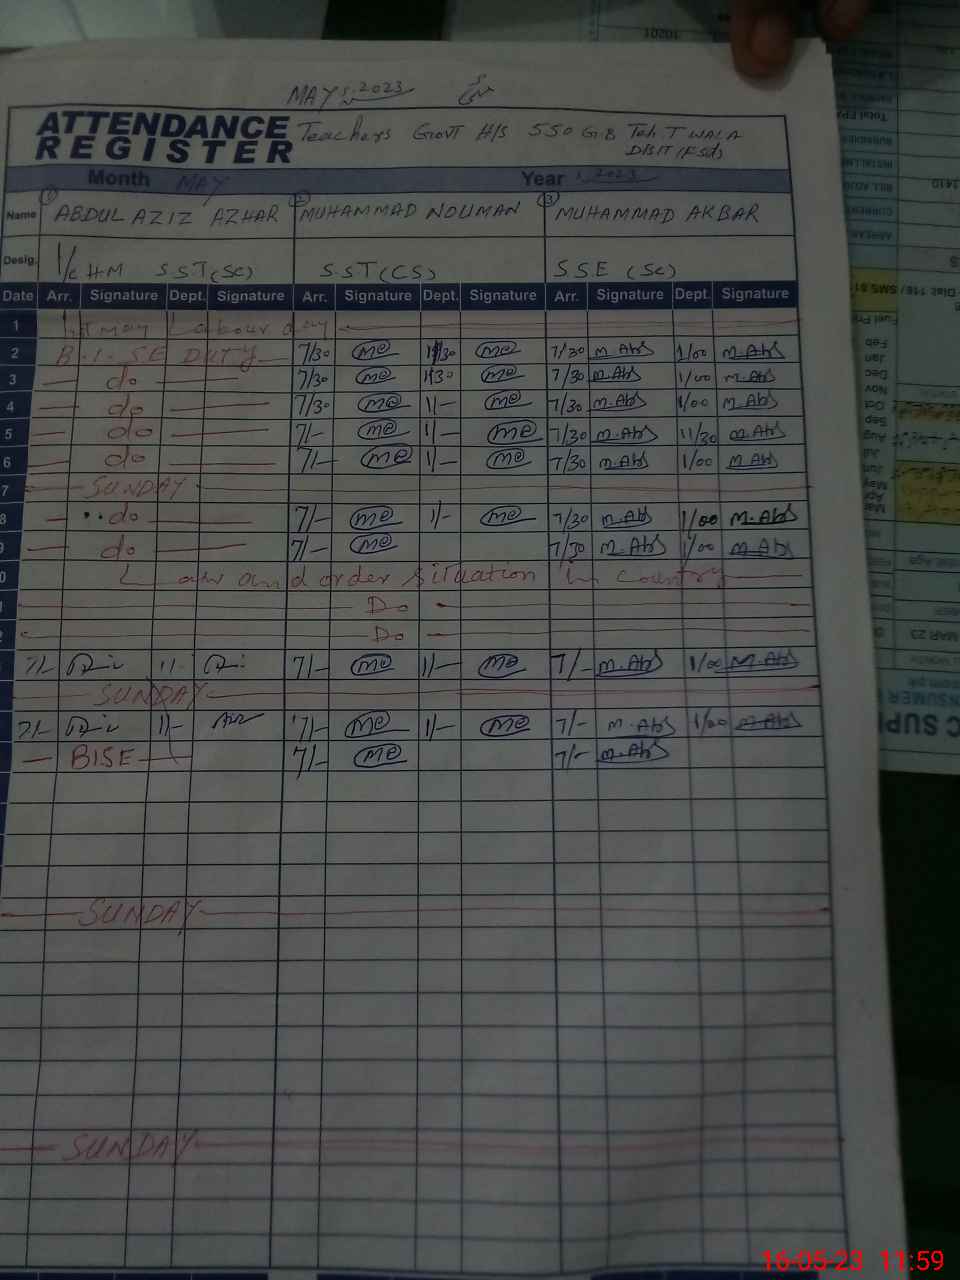 MAY 5.2023
ATTENDANCE REGISTER Teachers Govt H/S 550 G.B Teh T WALA
DISIT (Fsd)
Month MAY Year 2023
Name ① ABDUL AZIZ AZHAR ② MUHAMMAD NOUMAN ③ MUHAMMAD AKBAR
Desig. I/c H.M S.ST(SC) S.ST(CS) SSE (Sc)
Date Arr. Signature Dept. Signature Arr. Signature Dept. Signature Arr. Signature Dept. Signature
1 1st may Labour day
2 B.I.SE DUTY 7/30 me 11/30 me 7/30 m.Abs 1/00 m.Abs
3 do 7/30 me 11/30 me 7/30 m.Abs 1/00 m.Abs
4 do 7/30 me 1/- me 7/30 m.Abs 1/00 m.Abs
5 do 7/- me 1/- me 7/30 m.Abs 11/30 m.Abs
6 do 7/- me 1/- me 7/30 m.Abs 1/00 m.Abs
7 SUNDAY
8 do 7/- me 1/- me 7/30 m.Abs 1/00 m.Abs
9 do 7/- me 7/30 m.Abs 1/00 m.Abs
0 Law and order situation in country
1 Do
2 Do
7/- 1/- 7/- me 1/- me 7/- m.Abs 1/00 m.Abs
SUNDAY
7/- 1/- 7/- me 1/- me 7/- m.Abs 1/00 m.Abs
BISE 7/- me 7/- m.Abs
SUNDAY
SUNDAY
10201
Total
1410
Feb
Jan
Dec
Nov
Oct
Sep
Aug
Jul
Jun
May
Apr
Mar
MAR 23
NSUMER
C SUPP
16-05-23 11:59